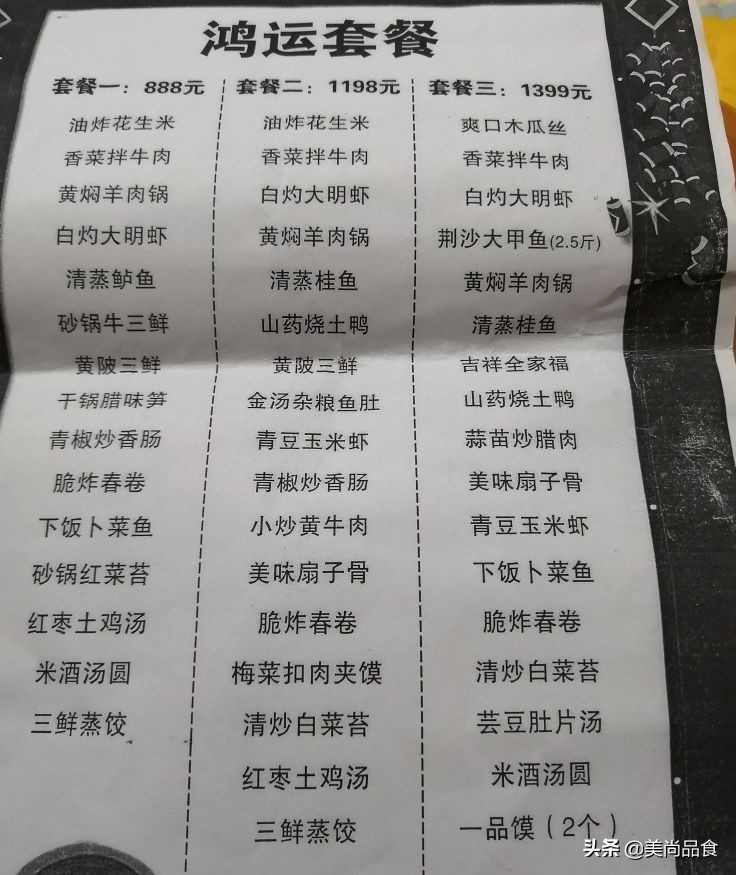 鸿运套餐
套餐一：888元
油炸花生米
香菜拌牛肉
黄焖羊肉锅
白灼大明虾
清蒸鲈鱼
砂锅牛三鲜
黄陂三鲜
干锅腊味笋
青椒炒香肠
脆炸春卷
下饭卜菜鱼
砂锅红菜苔
红枣土鸡汤
米酒汤圆
三鲜蒸饺
套餐二：1198元
油炸花生米
香菜拌牛肉
白灼大明虾
黄焖羊肉锅
清蒸桂鱼
山药烧土鸭
黄陂三鲜
金汤杂粮鱼肚
青豆玉米虾
青椒炒香肠
小炒黄牛肉
美味扇子骨
脆炸春卷
梅菜扣肉夹馍
清炒白菜苔
红枣土鸡汤
三鲜蒸饺
套餐三：1399元
爽口木瓜丝
香菜拌牛肉
白灼大明虾
荆沙大甲鱼(2.5斤)
黄焖羊肉锅
清蒸桂鱼
吉祥全家福
山药烧土鸭
蒜苗炒腊肉
美味扇子骨
青豆玉米虾
下饭卜菜鱼
脆炸春卷
清炒白菜苔
芸豆肚片汤
米酒汤圆
一品馍（2个）
头条 @美尚品食